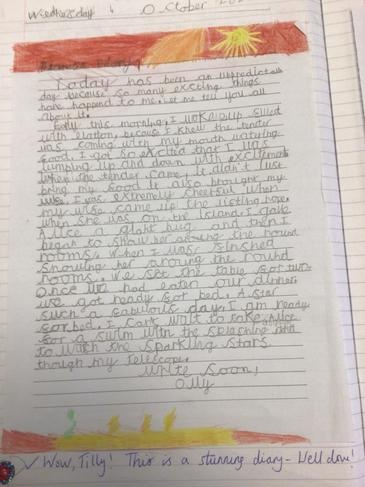 Wednesday October
Today has been an unpredictable
day because so many exciting things
have happend to me. Let me tell you all
about it.
Early this morning, I woke up filled
with elation, because I knew the tender
was coming with my mouth watering
food. I got so excited that I was
jumping up and down with excitement
when the tender came, it didn't just
bring my food it also brought my
wife. I was extremely cheerful when
my wife came up the
when she was on the island. I gave
Alice a giant hug and then I
began to show her around the round
rooms. When I was finished
showing her around the round
rooms, we set the table for two.
Once we had eaten our dinners
we got ready for bed.
such a fabulous day, I am ready
for bed. I can't wait to take Alice
for a swim with the splashing
to watch the sparkling stars
though my telescope.
Write soon,
Olly
Wow, Tilly! This is a stunning diary - Well done!